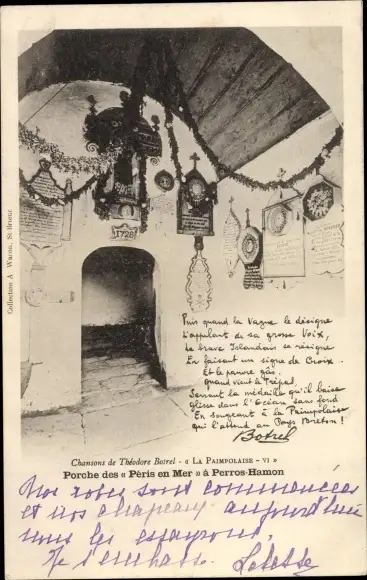 Collection A Waron, St Brieuc
1728
Puis quand la Vague le désigne
L'appelant de sa grosse Voix,
Le brave Islandais se résigne
En faisant un signe de Croix.
Et le pauvre gâs,
Quand vient le Trépas,
Serrant la médaille qu'il baise
Glisse dans l'Océan sans fond
En songeant à la Paimpolaise
qui l'attend au Pays Breton !
Botrel
Chansons de Théodore Botrel - « LA PAIMPOLAISE - VI »
Porche des « Péris en Mer » à Perros-Hamon
Nos robes sont commencées
et nos chapeaux aujourd'hui
nous les essayerons.
Je t'embrasse.